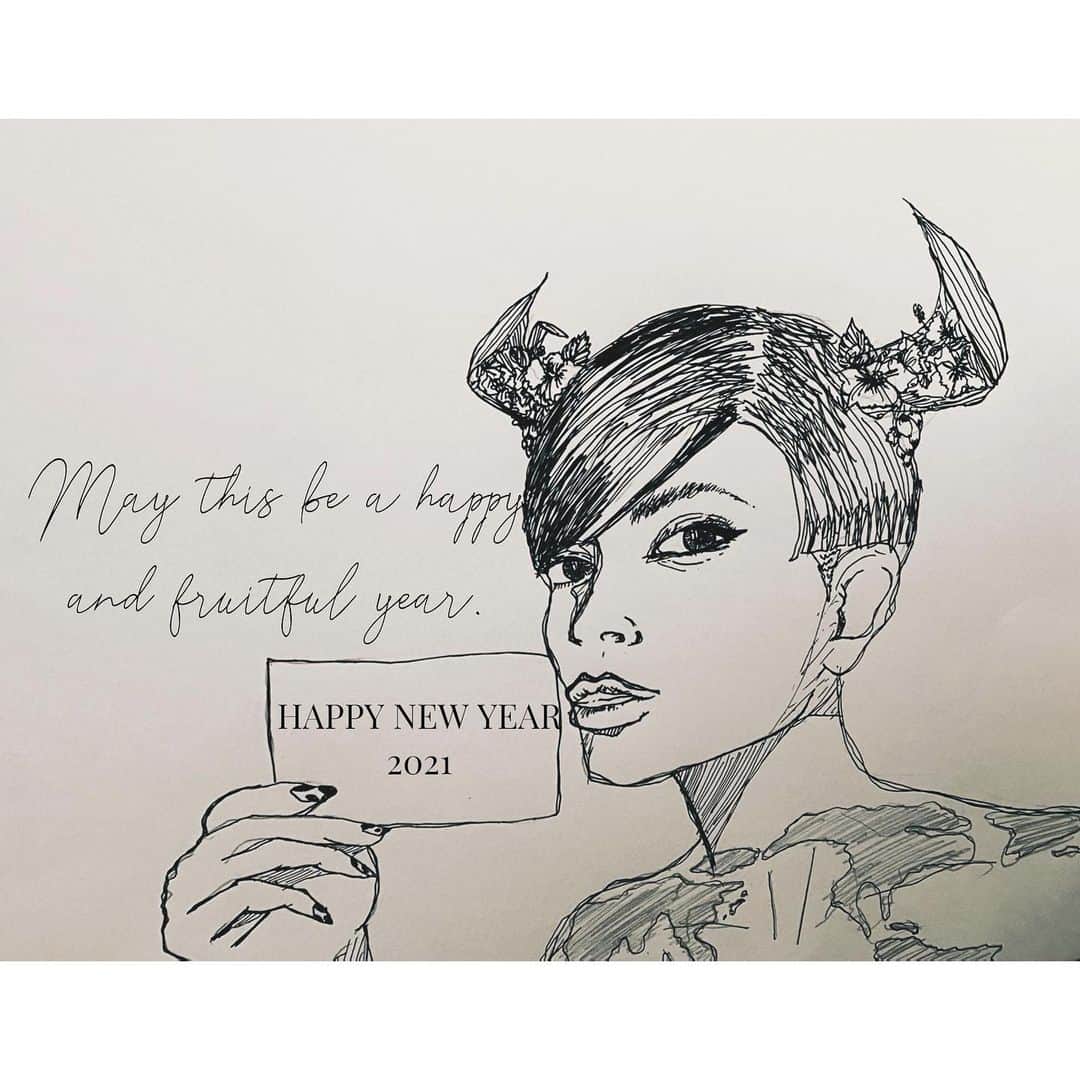 May this be a happy
and fruitful year.
HAPPY NEW YEAR
2021